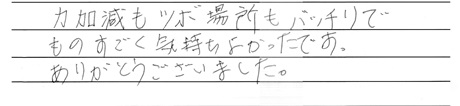 力加減もツボ場所もバッチリで
ものすごく気持ちよかったです。
ありがとうございました。